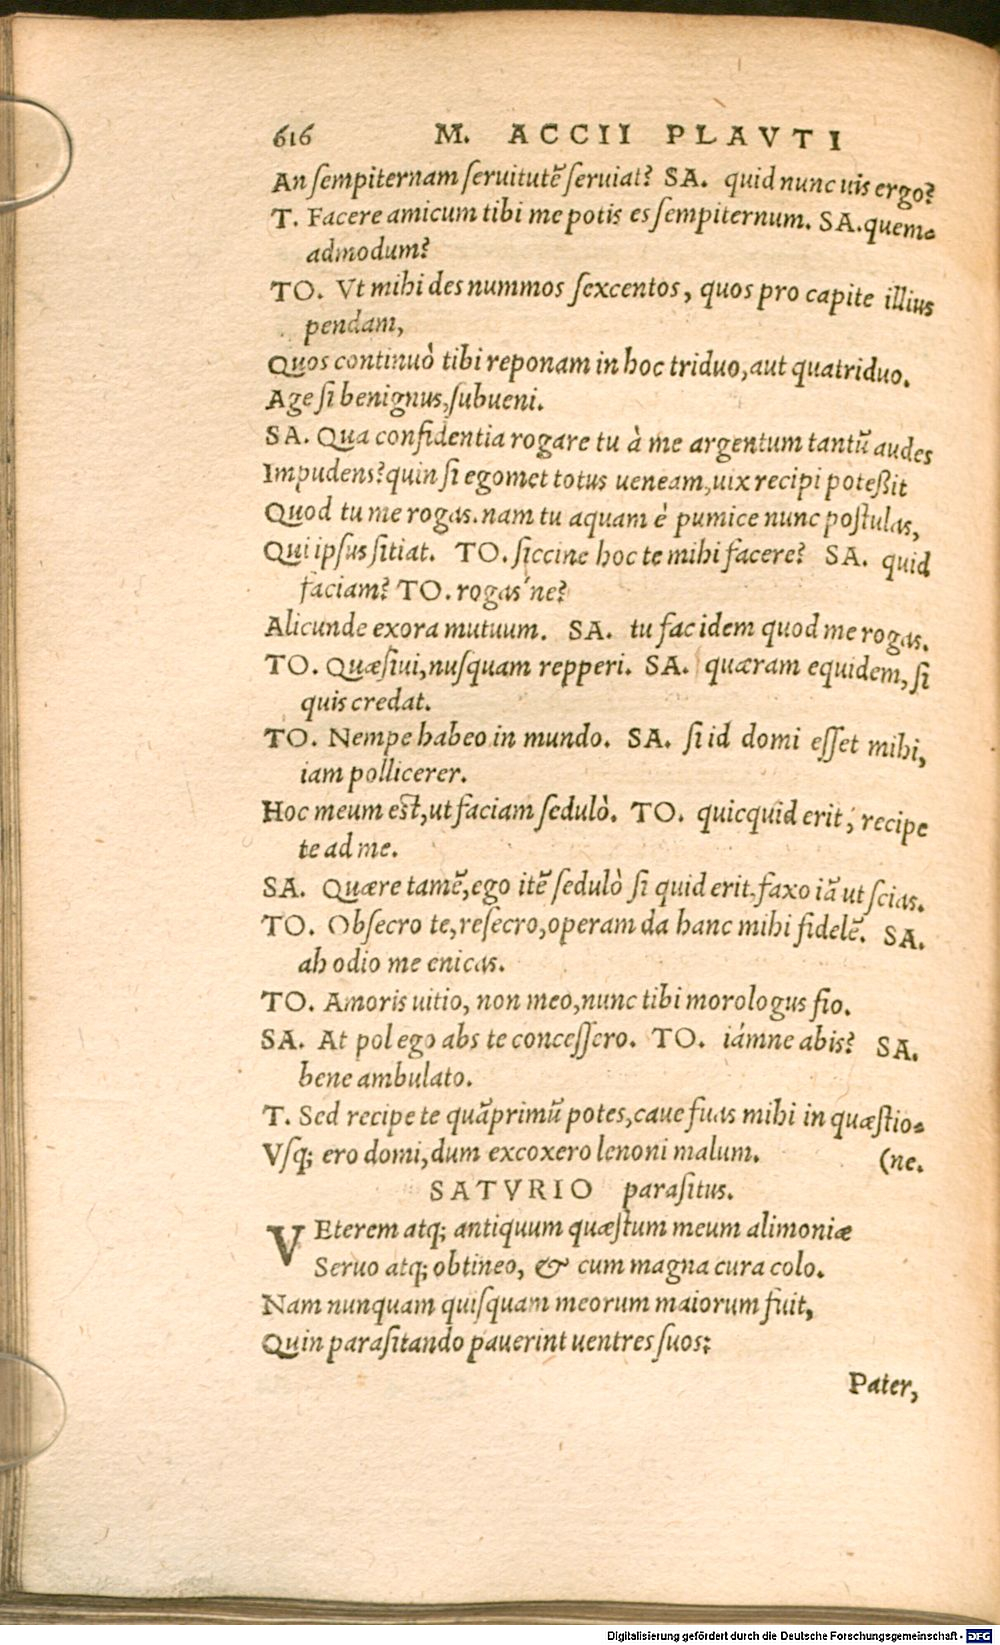 616 M. ACCII PLAVTI
An ſempiternam ſeruitutẽ ſeruiat? SA. quid nunc uis ergo?
T. Facere amicum tibi me potis es ſempiternum. SA. quem-
admodum?
TO. Vt mihi des nummos ſexcentos, quos pro capite illius
pendam,
Quos continuò tibi reponam in hoc triduo, aut quatriduo.
Age ſi benignus, ſubueni.
SA. Qua confidentia rogare tu à me argentum tantũ audes
Impudens? quin ſi egomet totus ueneam, uix recipi poteßit
Quod tu me rogas. nam tu aquam è pumice nunc poſtulas,
Qui ipſus ſitiat. TO. ſiccine hoc te mihi facere? SA. quid
faciam? TO. rogas'ne?
Alicunde exora mutuum. SA. tu fac idem quod me rogas.
TO. Quæſiui, nuſquam repperi. SA. quæram equidem, ſi
quis credat.
TO. Nempe habeo in mundo. SA. ſi id domi eſſet mihi,
iam pollicerer.
Hoc meum eſt, ut faciam ſedulò. TO. quicquid erit, recipe
te ad me.
SA. Quære tamẽ, ego itẽ ſedulò ſi quid erit, faxo iã ut ſcias.
TO. Obſecro te, reſecro, operam da hanc mihi fidelẽ. SA.
ah odio me enicas.
TO. Amoris uitio, non meo, nunc tibi morologus fio.
SA. At pol ego abs te conceſſero. TO. iámne abis? SA.
bene ambulato.
T. Sed recipe te quãprimũ potes, caue fuas mihi in quæſtio-
Vſq; ero domi, dum excoxero lenoni malum. (ne.
SATVRIO paraſitus.
VEterem atq; antiquum quæſtum meum alimoniæ
Seruo atq; obtineo, & cum magna cura colo.
Nam nunquam quiſquam meorum maiorum fuit,
Quin paraſitando pauerint uentres ſuos:
Pater,
Digitalisierung gefördert durch die Deutsche Forschungsgemeinschaft - DFG